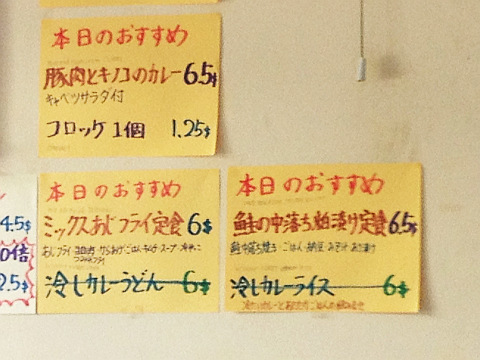 本日のおすすめ
豚肉とキノコのカレー 6.5$
キャベツサラダ付
コロッケ1個 1.25$
本日のおすすめ
ミックスあじフライ定食 6$
冷しカレーうどん 6$
本日のおすすめ
鮭の中落ち粕漬け定食 6.5$
冷しカレーライス 6$
4.5$
0倍
2.5$